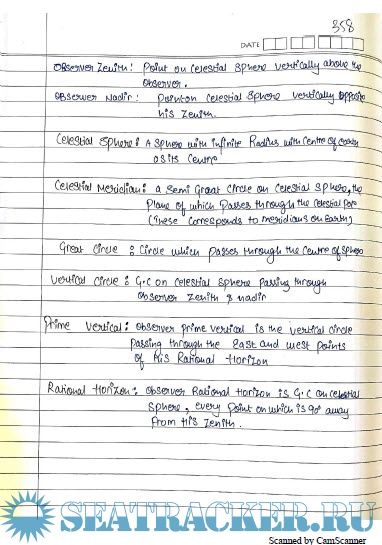 358
DATE
Observer Zenith : Point on celestial sphere vertically above the
observer.
Observer Nadir : Point on celestial sphere vertically opposite
his Zenith.
Celestial Sphere : A sphere with infinite Radius with Centre of earth
as its Centre
Celestial Meridian : a semi Great circle on celestial sphere, the
Plane of which Passes through the celestial Pole
(These corresponds to meridians on Earth)
Great Circle : Circle which passes through the Centre of sphere
Vertical Circle : G.C on celestial sphere passing through
observer zenith & nadir
Prime Vertical : Observer prime vertical is the vertical circle
passing through the East and West points
of his Rational Horizon
Rational Horizon : Observer Rational Horizon is G.C on celestial
sphere, every point on which is 90° away
From his Zenith.
SEATRACKER.RU
Scanned by CamScanner